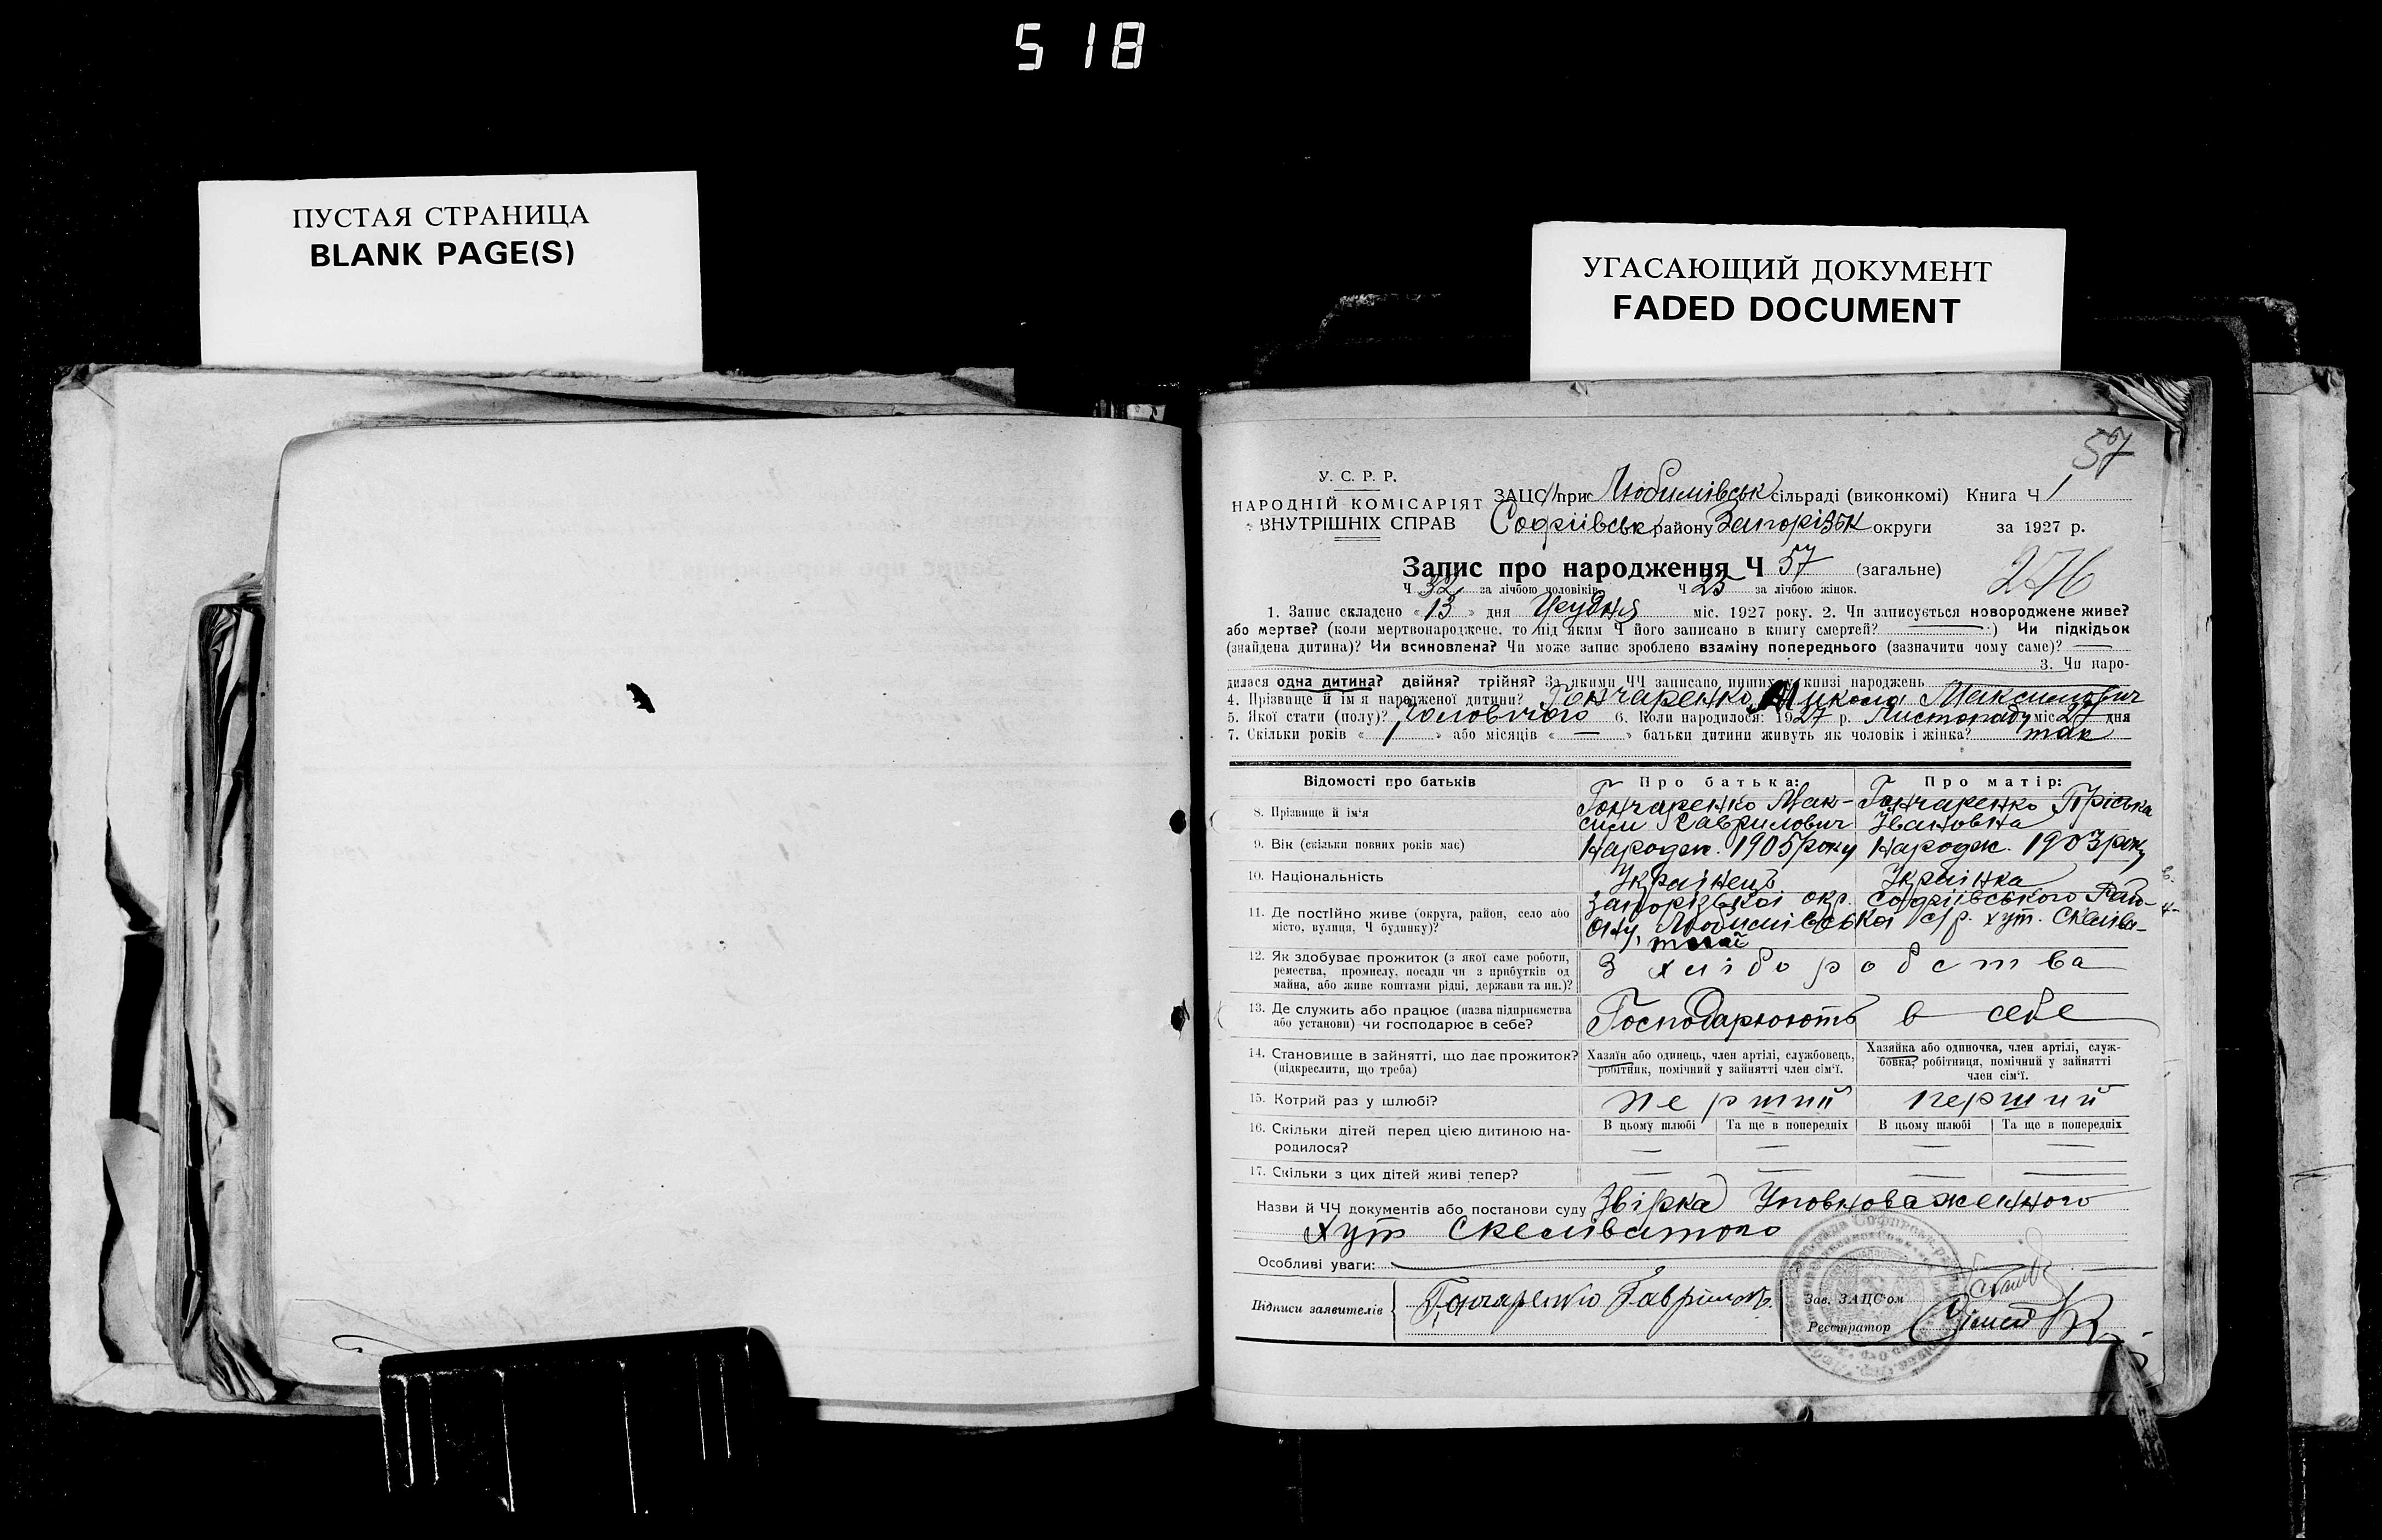 518
ПУСТАЯ СТРАНИЦА
BLANK PAGE(S)
УГАСАЮЩИЙ ДОКУМЕНТ
FADED DOCUMENT
57
У. С. Р. Р.
НАРОДНІЙ КОМІСАРІЯТ
ВНУТРІШНІХ СПРАВ
ЗАЦС при Любимівськ сільраді (виконкомі) Книга Ч 1
Софіївськ району Запорізьк округи за 1927 р.
Запис про народження Ч 57 (загальне)
276
Ч 32 за лічбою чоловіків Ч 25 за лічбою жінок.
1. Запис складено « 13 » дня Грудня міс. 1927 року. 2. Чи записується новороджене живе?
або мертве? (коли мертвонароджене, то під яким Ч його записано в книгу смертей? —) Чи підкідьок
(знайдена дитина)? Чи всиновлена? Чи може запис зроблено взаміну попереднього (зазначити чому саме)? —
3. Чи наро-
дилася одна дитина? двійня? трійня? За якими ЧЧ записано инших у книзі народжень
4. Прізвище й ім'я народженої дитини? Гончаренко Микола Максимович
5. Якої стати (полу)? Чоловічого 6. Коли народилося: 1927 р. Листопаду міс 27 дня
7. Скільки років « 1 » або місяців « — » батьки дитини живуть як чоловік і жінка? так
Відомості про батьків Про батька: Про матір:
8. Прізвище й ім'я Гончаренко Мак- Гончаренко Пріська
сим Гаврилович Івановна
9. Вік (скільки повних років має) Народж. 1905 року Народж. 1903 року
10. Національність Українець Українка
11. Де постійно живе (округа, район, село або Запорізької окр. Софіївського Рай-
місто, вулиця, Ч будинку)? ону, Любимівської с/р. хут. Скеліва-
тий
12. Як здобуває прожиток (з якої саме роботи, З хліборобства
ремества, промислу, посади чи з прибутків од
майна, або живе коштами рідні, держави та ин.)?
13. Де служить або працює (назва підприємства Господарюють в себе
або установи) чи господарює в себе?
14. Становище в зайнятті, що дає прожиток? Хазяїн або одинець, член артілі, службовець, Хазяйка або одиночка, член артілі, служ-
(підкреслити, що треба) робітник, помічний у зайнятті член сім'ї. бовка, робітниця, помічний у зайнятті
член сім'ї.
15. Котрий раз у шлюбі? перший перший
16. Скільки дітей перед цією дитиною на- В цьому шлюбі Та ще в попередніх В цьому шлюбі Та ще в попередніх
родилося? — — — —
17. Скільки з цих дітей живі тепер? — — — —
Назви й ЧЧ документів або постанови суду Звірка Уповноваженного
Хут Скеліватого
Особливі уваги:
Підписи заявителів Гончаренко Гаврило
Зав. ЗАЦС'ом
Реєстратор